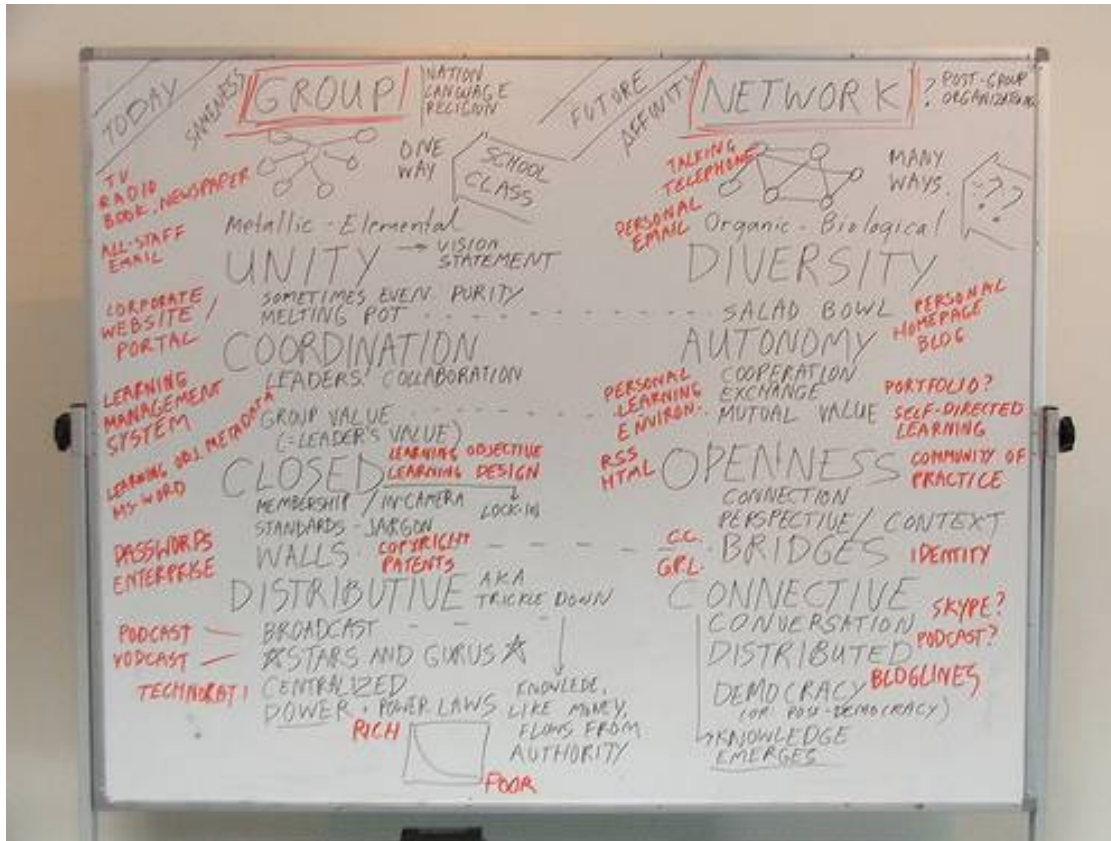 TODAY
SAMENESS
GROUP
NATION
LANGUAGE
RELIGION
ONE
WAY
SCHOOL
CLASS
TV
RADIO
BOOK, NEWSPAPER
ALL-STAFF
EMAIL
Metallic - Elemental
UNITY → VISION
STATEMENT
SOMETIMES EVEN PURITY
MELTING POT
CORPORATE
WEBSITE /
PORTAL
COORDINATION
LEADERS' COLLABORATION
LEARNING
MANAGEMENT
SYSTEM
GROUP VALUE
(=LEADER'S VALUE)
LEARNING OBJ. METADATA
MS-WORD
CLOSED
LEARNING OBJECTIVE
LEARNING DESIGN
MEMBERSHIP / IN-CAMERA
LOCK-IN
STANDARDS - JARGON
WALLS
COPYRIGHT
PATENTS
PASSWORDS
ENTERPRISE
DISTRIBUTIVE AKA
TRICKLE DOWN
BROADCAST
☆STARS AND GURUS☆
PODCAST
VODCAST
TECHNORATI
CENTRALIZED
POWER . POWER LAWS
RICH
POOR
KNOWLEDE,
LIKE MONEY,
FLOWS FROM
AUTHORITY
FUTURE
AFFINITY
NETWORK
? POST-GROUP
ORGANIZATIONS
TALKING
TELEPHONE
MANY
WAYS.
???
PERSONAL
EMAIL
Organic - Biological
DIVERSITY
SALAD BOWL
PERSONAL
HOMEPAGE
BLOG
AUTONOMY
COOPERATION
EXCHANGE
MUTUAL VALUE
PERSONAL
LEARNING
ENVIRON.
PORTFOLIO?
SELF-DIRECTED
LEARNING
RSS
HTML
OPENNESS
COMMUNITY OF
PRACTICE
CONNECTION
PERSPECTIVE / CONTEXT
C.C.
G.P.L.
BRIDGES
IDENTITY
CONNECTIVE
CONVERSATION
SKYPE?
DISTRIBUTED
PODCAST?
DEMOCRACY
BLOGLINES
(OR POST-DEMOCRACY)
→KNOWLEDGE
EMERGES